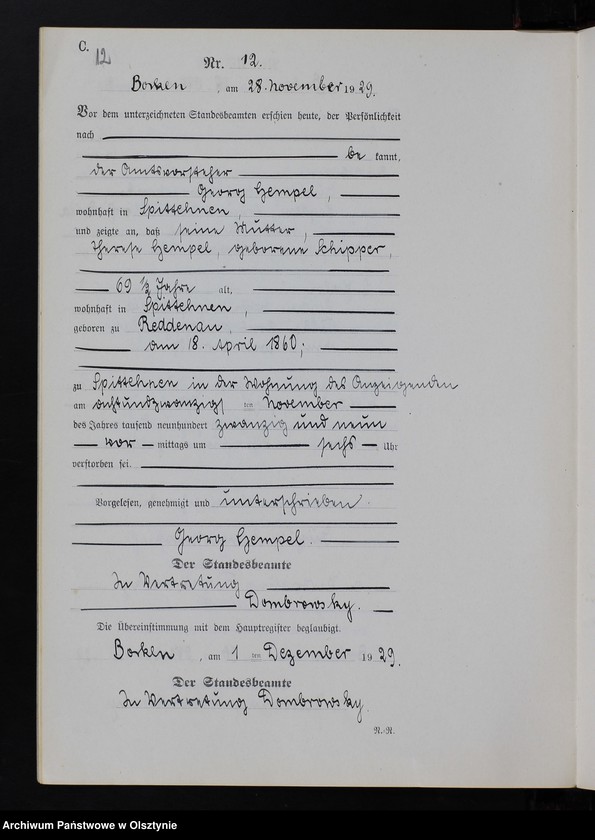 C.
12
Nr. 12.
Borken, am 28. November 1929.
Vor dem unterzeichneten Standesbeamten erschien heute, der Persönlichkeit
nach
be kannt,
der Amtsvorsteher
Georg Hempel,
wohnhaft in Spittehnen,
und zeigte an, daß seine Mutter,
Therese Hempel, geborene Schipper,
69 1/2 Jahre alt,
wohnhaft in Spittehnen,
geboren zu Reddenau,
am 18. April 1860;
zu Spittehnen in der Wohnung des Anzeigenden
am achtundzwanzigsten November
des Jahres tausend neunhundert zwanzig und neun
vor mittags um sechs Uhr
verstorben sei.
Vorgelesen, genehmigt und unterschrieben.
Georg Hempel.
Der Standesbeamte
In Vertretung
Dombrowsky.
Die Übereinstimmung mit dem Hauptregister beglaubigt.
Borken, am 1 ten Dezember 1929.
Der Standesbeamte
In Vertretung Dombrowsky.
N.-R.
Archiwum Państwowe w Olsztynie